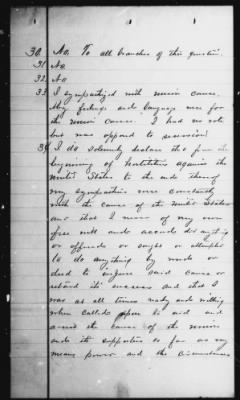 30. No. To all branches of this question.
31 No.
32. No
33 I sympathized with union cause.
My feelings and language were for
the union cause. I had no vote
but was opposed to secession.
34 I do solemnly declare that from the
beginning of hostilities against the
United States to the end thereof
my sympathies were constantly
with the cause of the United States
and that I never of my own
free will and accord did anything
or offered or sought or attempted
to do anything by words or
deed to injure said cause or
retard its success and that I
was at all times ready and willing
when called upon to aid and
assist the cause of the union
and its supporters so far as my
means power and the circumstances